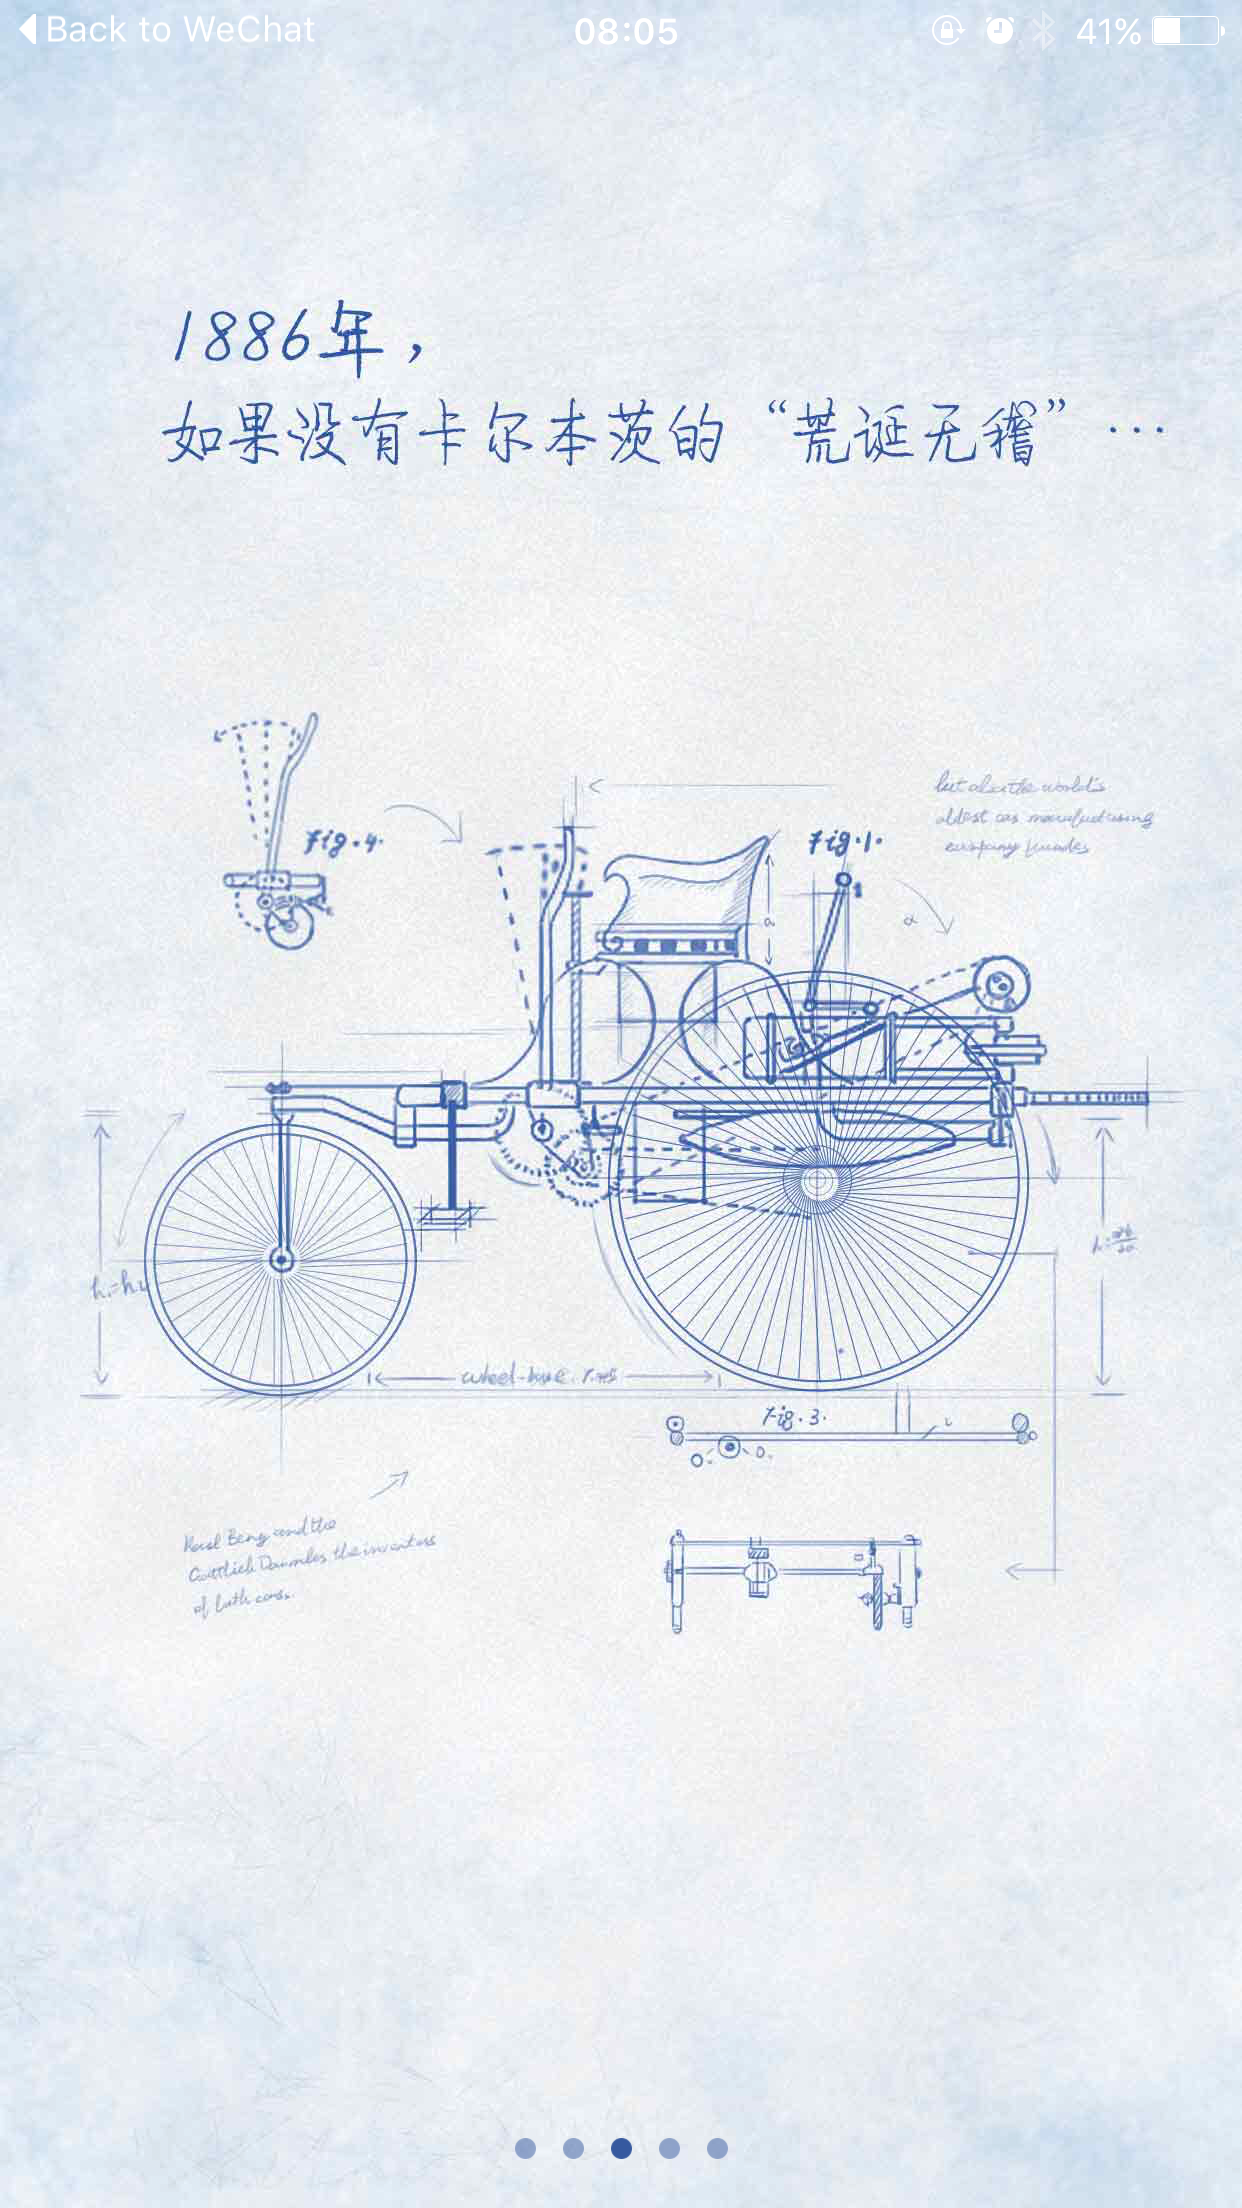 Back to WeChat
08:05
41%
1886年，
如果没有卡尔本茨的“荒诞无稽”…
Fig.4.
Fig.1.
but also the world's
oldest car manufacturing
company
a
α
h₁=h₂
wheel-base
Fig.3.
Benz and the
Gottlieb the inventors
of both cars.